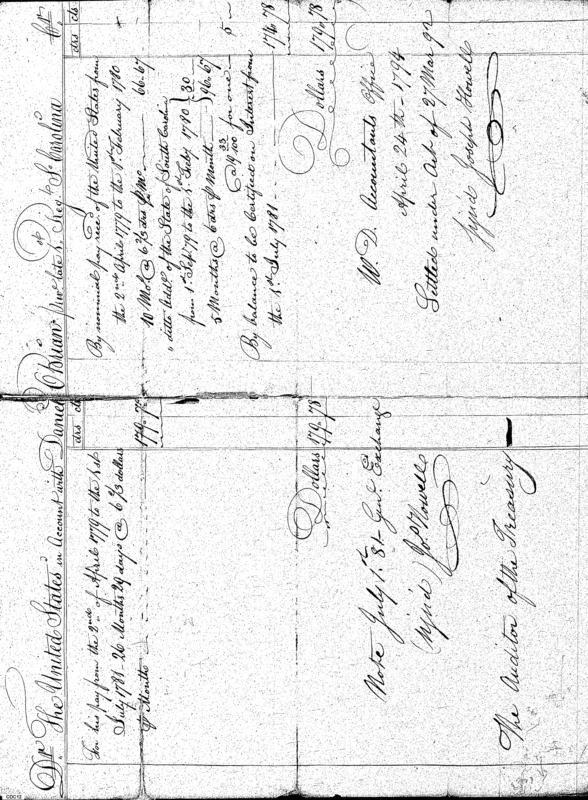 Dr. The United States in Account with Daniel OBrian priv.t late 1. Reg.t So. Carolina Cr.
drs cts
For his pay from the 2nd of April 1779 to the 1st
July 1781 - 26 Months 29 days @ 6 2/3 dollars
℔ Month 179.78
Dollars 179.78
Note July 1st 81 - Gen.l Exchange
Sign'd Jos. Howell
The Auditor of the Treasury
drs cts
By nominal pay rec.d of the United States from
the 2nd April 1779 to the 1st February 1780
10 Mos. @ 6 2/3 drs ℔ Mo. 66.67
ditto add.l of the State of South Carolina
from 1st Sept 79 to the 1st Feby 1780 } 30
5 Months @ 6 drs ℔ Month } 96.67
@ 19 33/100 for one 5 -
By balance to be Certified on Interest from
the 1st July 1781 174.78
Dollars 179.78
W. D. Accountants Office
April 24th 1794
Settled under Act of 27 Mar 92
Sign'd Joseph Howell
CDC12